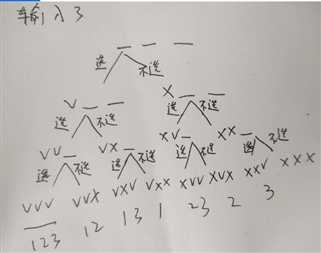 输入3
_ _ _
选 不选
V _ _ X _ _
选 不选 选 不选
VV _ VX _ XV _ XX _
选 不选 选 不选 选 不选 选 不选
VVV VVX VXV VXX XVV XVX XXV XXX
123 12 13 1 23 2 3